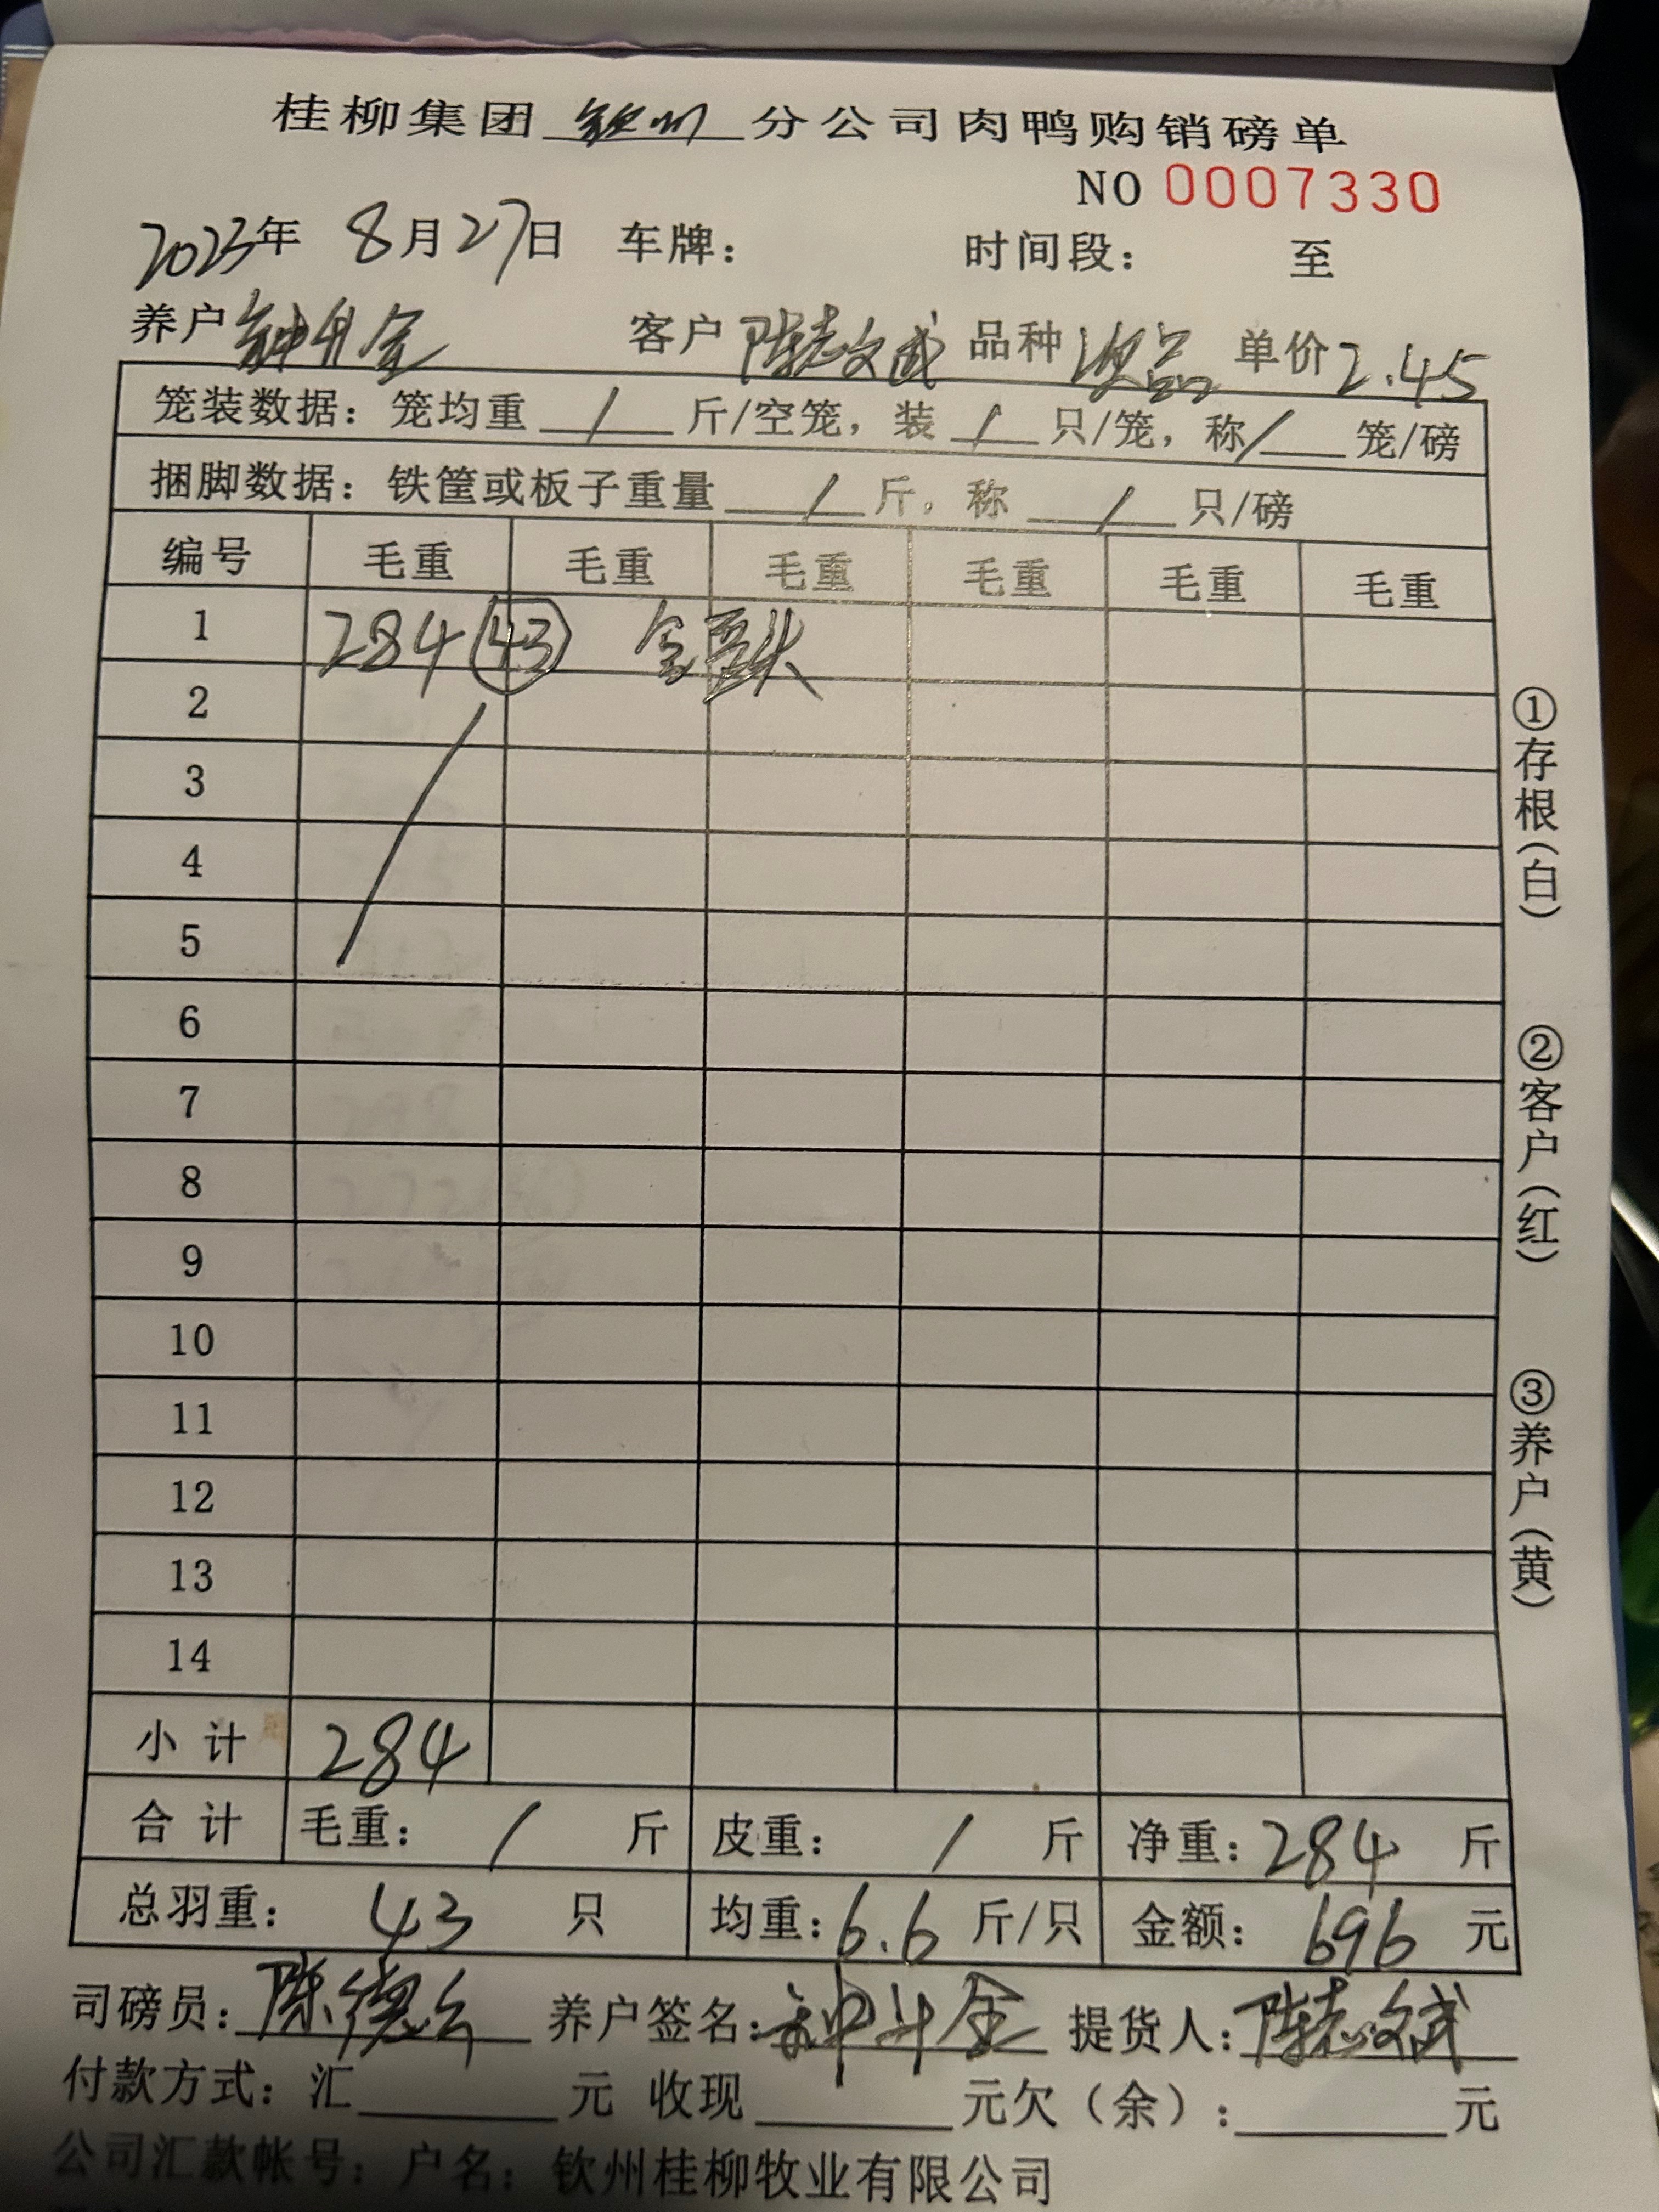 桂柳集团 钦州 分公司肉鸭购销磅单
NO 0007330
2023年 8月27日 车牌： 时间段： 至
养户 钟升金 客户 陈志斌 品种 次品 单价 2.45
笼装数据：笼均重 / 斤/空笼，装 / 只/笼，称 / 笼/磅
捆脚数据：铁筐或板子重量 / 斤，称 / 只/磅
编号 毛重 毛重 毛重 毛重 毛重 毛重
1 284 43
2
3
4
5
6
7
8
9
10
11
12
13
14
小计 284
合计 毛重： / 斤 皮重： / 斤 净重：284 斤
总羽重： 43 只 均重：6.6 斤/只 金额： 696 元
司磅员：陈德 养户签名：钟升金 提货人：陈志斌
付款方式：汇 元 收现 元欠（余）： 元
公司汇款帐号：户名：钦州桂柳牧业有限公司
①存根（白）
②客户（红）
③养户（黄）